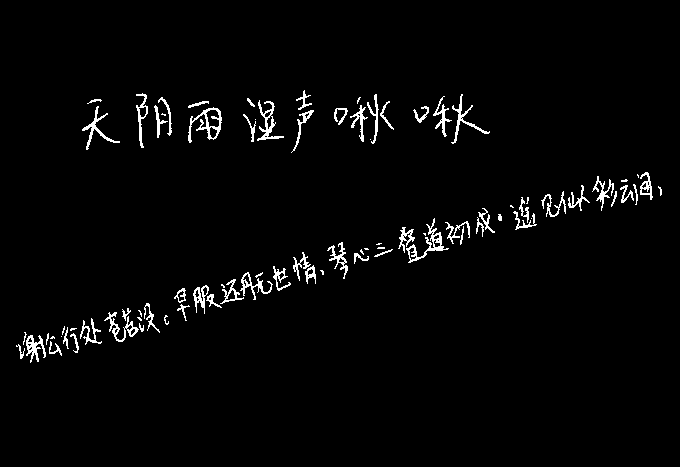 天阴雨湿声啾啾
谢公行处苍苔没。早服还丹无世情、琴心三叠道初成。遥见仙人彩云间、